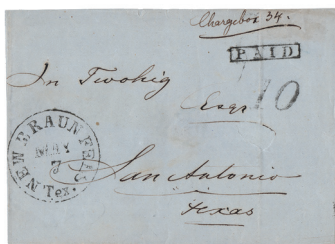 Chargebox 34.
PAID
10
Jn Twohig
Esqr
NEW BRAUNFELS
MAY
7
Tex.
San Antonio
Texas